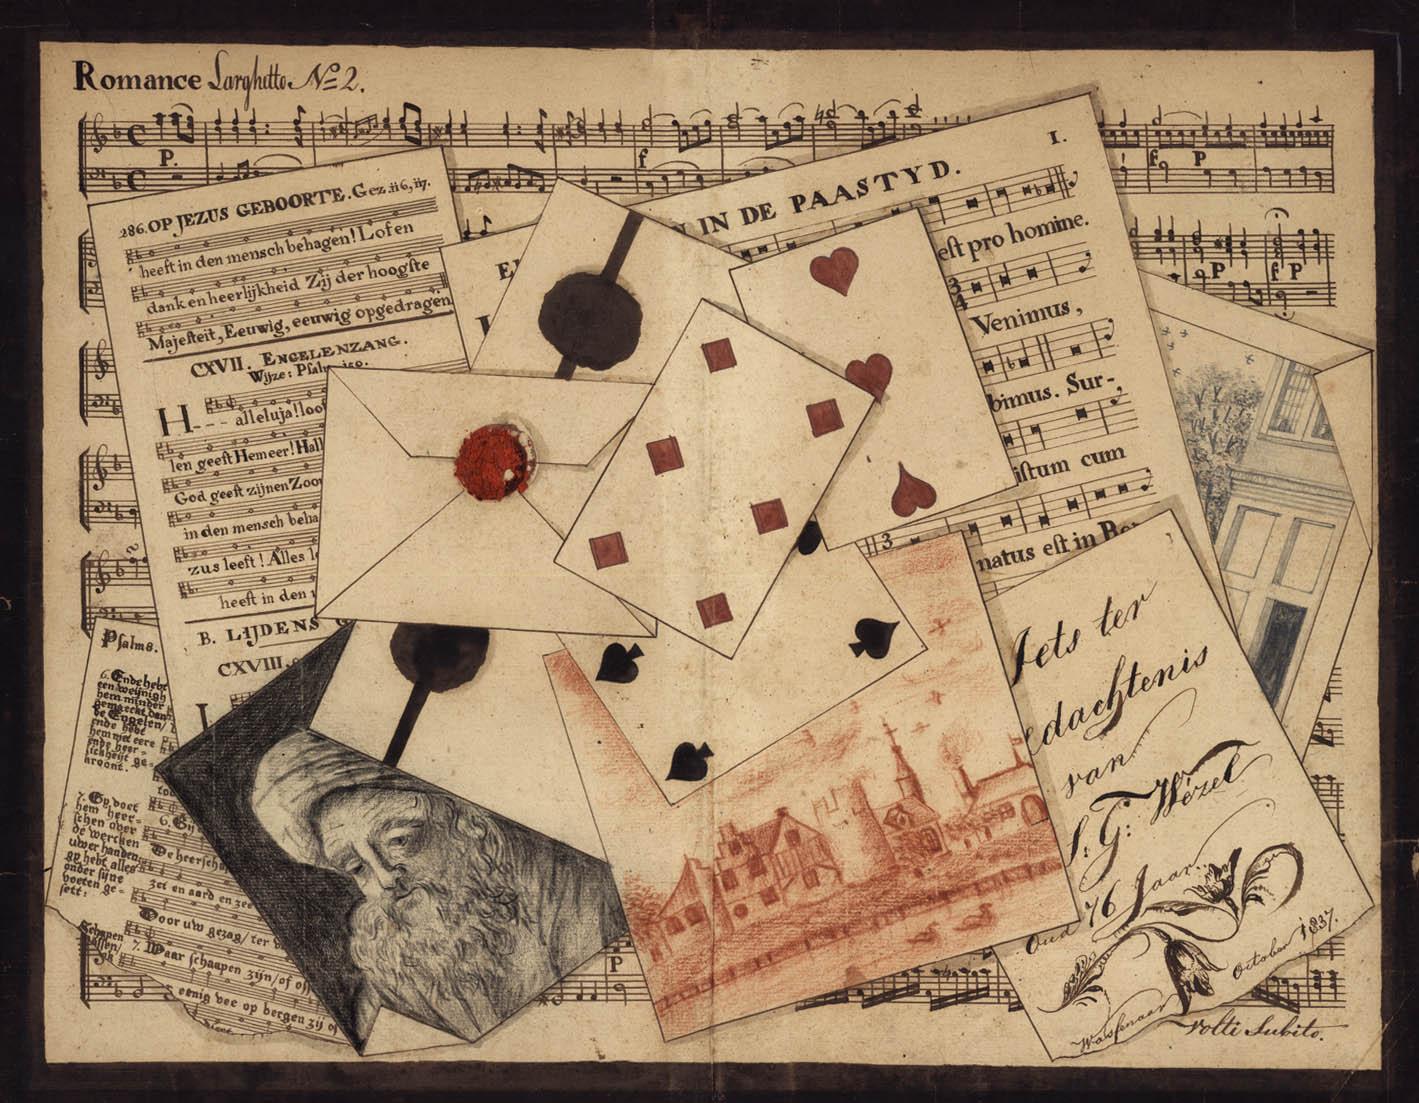 Romance Larghetto. No 2.
P.
f
f P
P
f P
286. OP JEZUS GEBOORTE. Gez. 116, 117.
heeft in den mensch behagen! Lof en
dank en heerlijkheid Zij der hoogste
Majesteit, Eeuwig, eeuwig opgedragen
CXVII. ENGELENZANG.
Wijze: Psalm 150.
H - - - alleluja! loof
len geeft Hem eer! Hal
God geeft zijnen Zoo
in den mensch beha
zus leeft! Alles l
heeft in den
B. LIJDENS G
CXVIII.
N IN DE PAASTYD.
1.
est pro homine.
3
4
Venimus,
bimus. Sur-,
istum cum
3
natus est in Be
Psalm 8.
6. Ende hebt
een weijnigh
hem minder
gemaeckt dan
de Engelen/
ende hebt
hem met eere
ende heer-
lickheijt ge-
kroont.
7. Gy doet
hem heer-
schen over
de wercken
uwer handen,
gy hebt alles
onder sijne
voeten ge-
sett:
Schapen
6. Gij
De heerscha
zet en aard en zee
Door uw gezag/ ter
7. Waar schaapen zijn/ of os
eenig vee op bergen zij of
Iets ter
edachtenis
van
S. G: Wézel
Oud 76 Jaar.
Wassenaar October 1837.
P
Volti Subito.